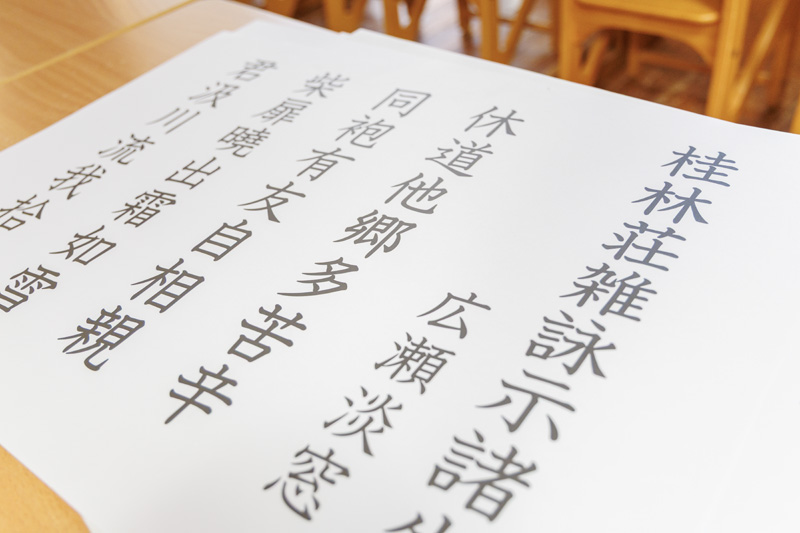 桂林荘雑詠示諸
広瀬淡窓
休道他郷多苦辛
同袍有友自相親
柴扉曉出霜如雪
君汲川流我拾